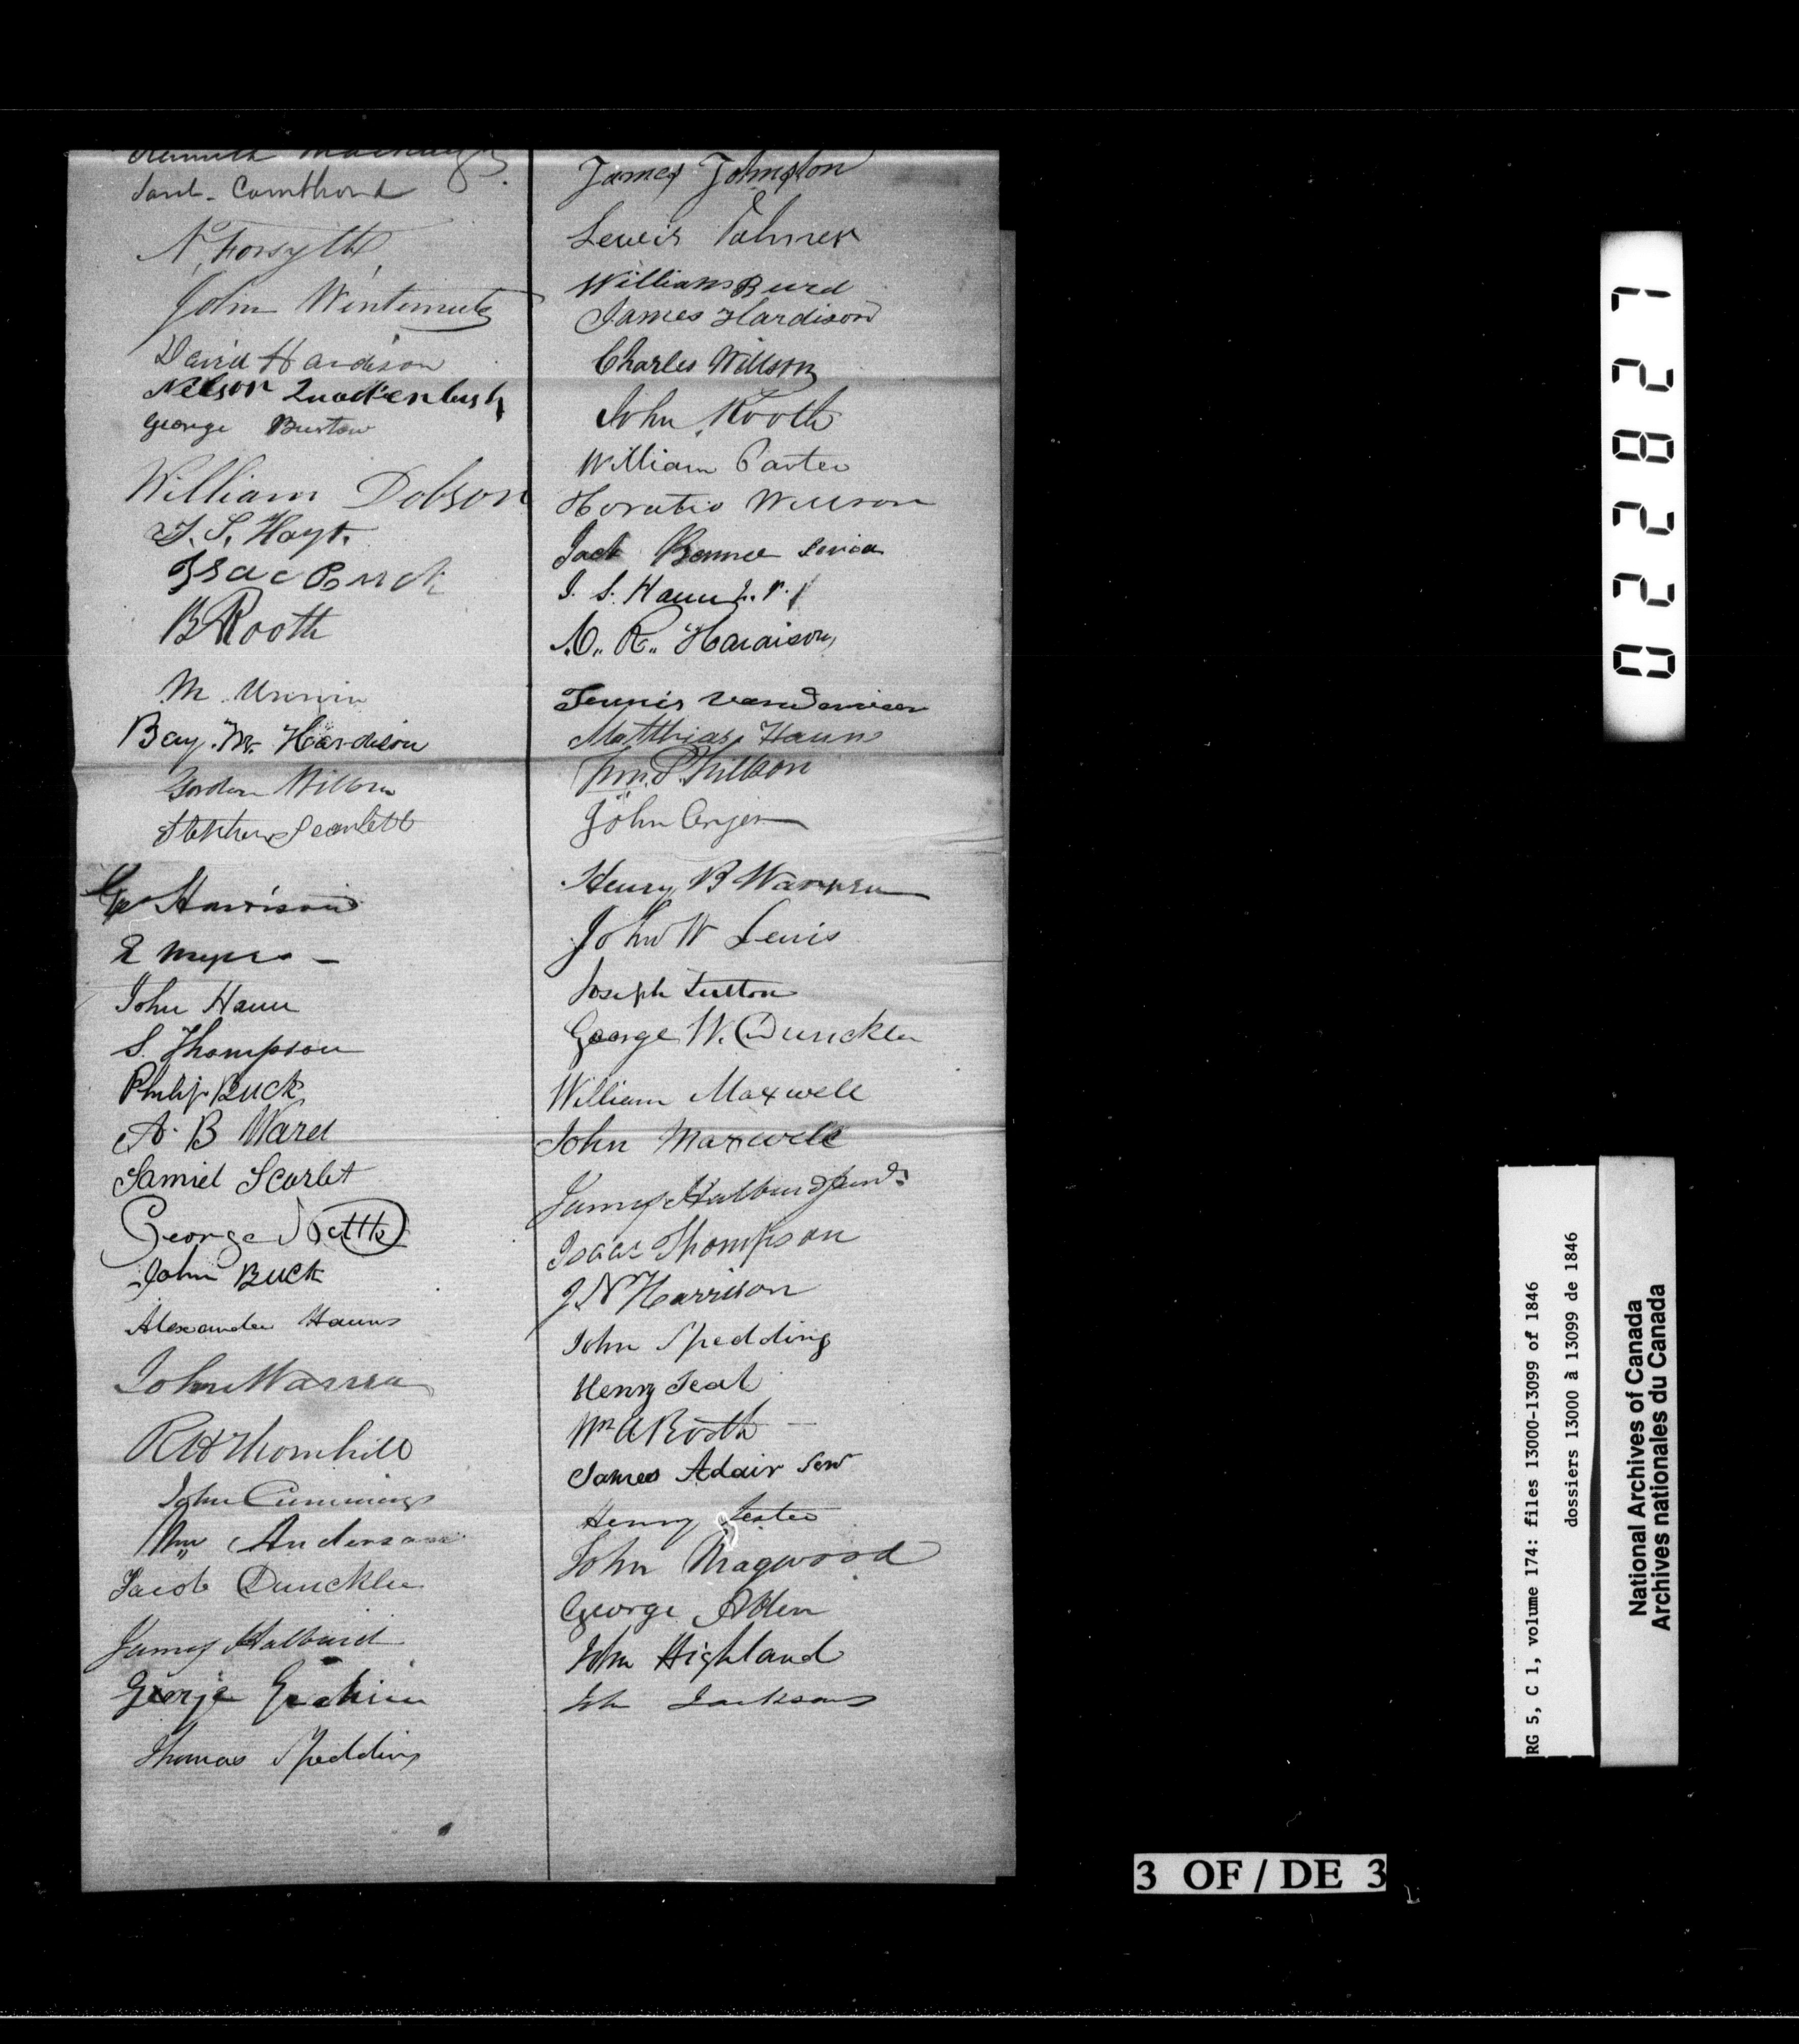 Kenneth Mackay
N. Forsyth
John Wintemute
David Hardison
Nelson Quackenbush
George Burton
William Dobson
T. S. Hoyt.
Isac Buck
B Rooth
M Unwin
Bay. M. Hardison
Gordon Willson
Stephen Scarlett
Geo Harrison
E Myers
John Haun
S. Thompson
Philip Buck
A. B Ward
Samiel Scarlet
George Nettle
John Buck
Alexander Hauns
John Warren
R H Thornhill
John Cummings
Wm Anderson
Jacob Dunckler
James Halbard
George
Thomas Spedding
James Johnston
Lewis Palmer
William Burd
James Hardison
Charles Willson
John Rooth
William Carter
Horatio Willson
Jacob senior
J. S. Haun
A. R. Hardison
Matthias Haun
Wm. P. Willson
John
Henry B Warren
John W Lewis
Joseph Sutton
George W. Dunckler
William Maxwell
John Maxwell
James Halbard
Isaac Thompson
J N Harrison
John Spedding
Henry
Wm A Booth
James Adair Senr
Henry
John Magwood
George Allen
John Highland
John Jackson
0 2 2 8 2 7
RG 5, C 1, volume 174: files 13000-13099 of 1846
dossiers 13000 à 13099 de 1846
National Archives of Canada
Archives nationales du Canada
3 OF / DE 3